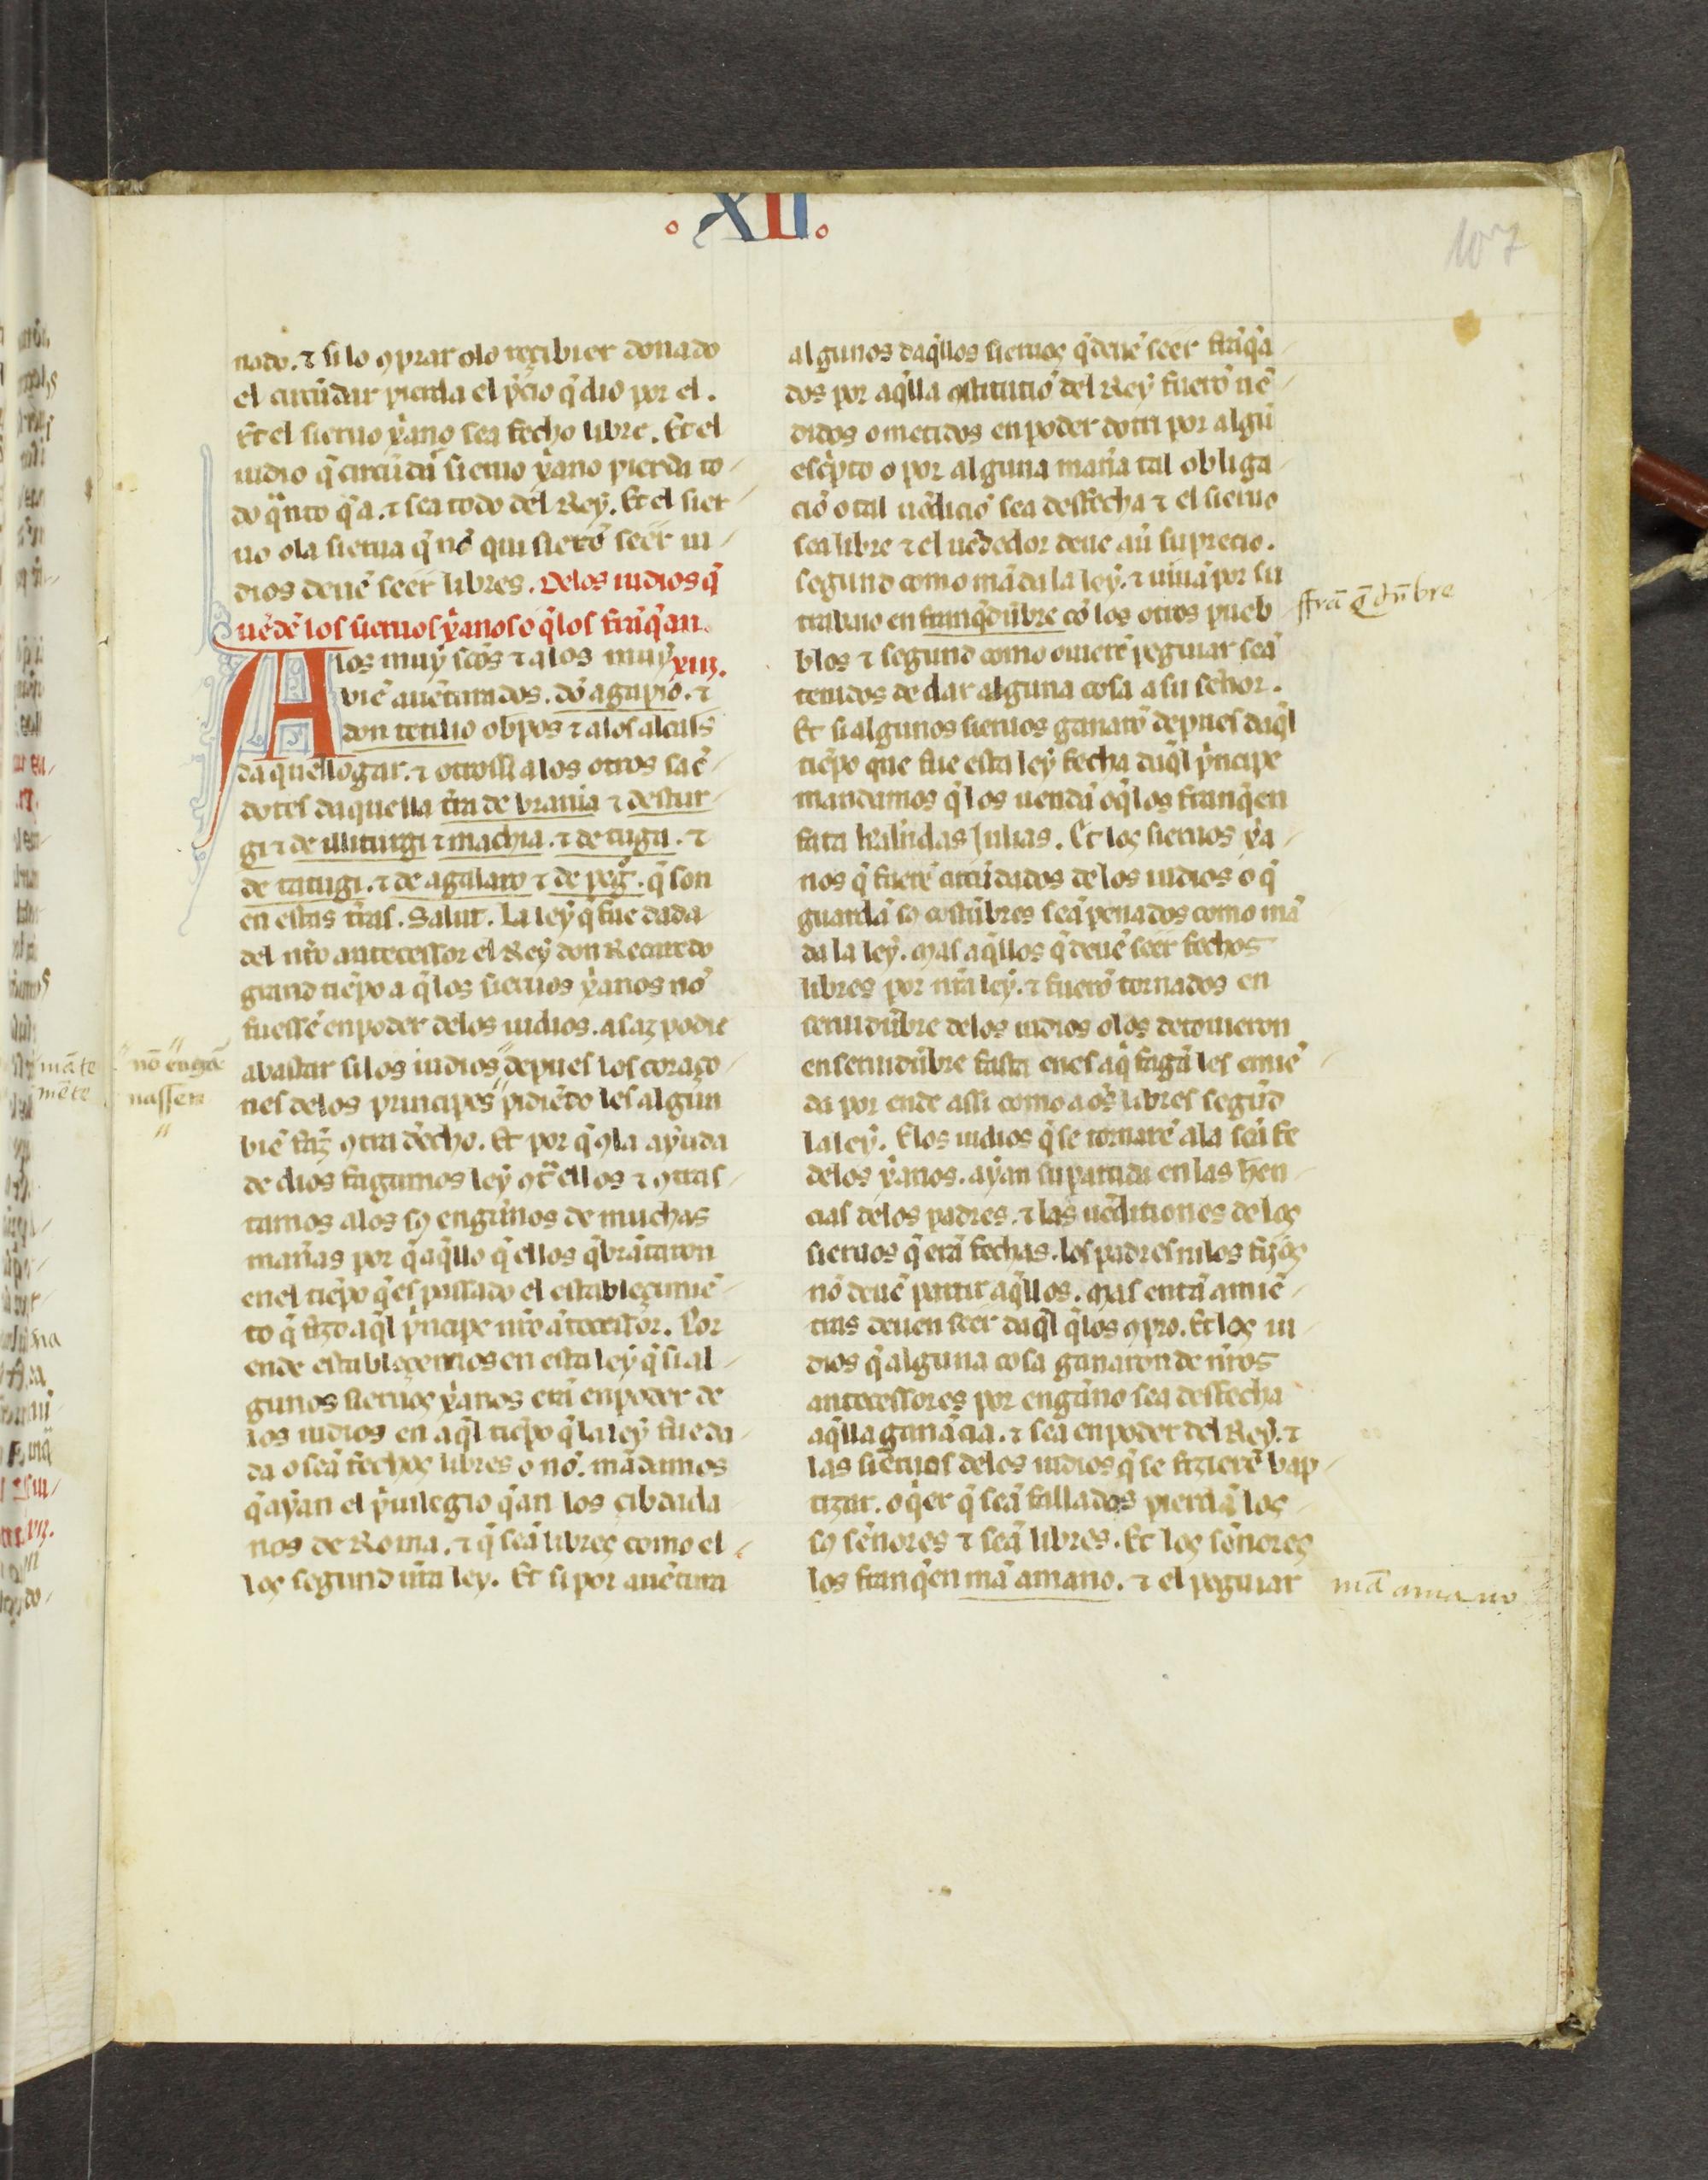 XII.
107
nado. ⁊ si lo ꝯprar o lo reçibier donado
el circũdar pierda el p̃cio q̃ dio por el.
Et el sieruo xp̃iano sea fecho libre. Et el
iudio q̃ circũdar sieruo xp̃iano pierda to
do q̃nto q̃ a. ⁊ sea todo del Rey. Et el sier
uo o la sierua q̃ nõ quisierõ seer iu
dios deuẽ seer libres. Delos iudios q̃
uẽdẽ los sieruos xp̃ianos o q̃ los frãq̃an.
A los muy sc̃os ⁊ alos muy xiii.
biẽ auẽturados. dõ agapio. ⁊
don cecilio obpos ⁊ alos alcalls
da quel logar. ⁊ otrossi alos otros sac̃
dotes daquella tr̃ra de brania ⁊ destur
gi ⁊ de illiturgi ⁊ machia. ⁊ de tuga. ⁊
de tatugi. ⁊ de agalaro ⁊ de peg̃. q̃ son
en estas tr̃ras. Salut. La ley q̃ fue dada
del nr̃o antecessor el Rey don Recaredo
grand tiẽpo a q̃ los sieruos xp̃ianos nõ
fuessẽ en poder delos iudios. asaz podie
abastar si los iudios depues los coraço
nes delos principes pidiẽdo les algun
biẽ faz̃ ꝯtra d̃echo. Et por q̃ ꝯla ayuda
de dios fagamos ley ꝯtr̃ ellos ⁊ ꝯtras
tamos alos sꝯ engannos de muchas
mañas por q̃ aq̃llo q̃ ellos q̃brãtaron
en el tiẽpo q̃ es passado el estableçimiẽ
to q̃ fizo aq̃l p̃ncipe nr̃o ãtecessor. Por
ende establecemos en esta ley q̃ si al
gunos sieruos xp̃ianos erã en poder de
los iudios en aq̃l tiẽpo q̃ la ley fue da
da o seã fechos libres o nõ. mãdamos
q̃ ayan el p̃uilegio q̃ an los cibdada
nos de Roma. ⁊ q̃ seã libres como el
los segund nr̃a ley. Et si por auẽtura
nõ enga
nassen
algunos daq̃llos sieruos q̃ deuẽ seer frãq̃a
dos por aq̃lla ꝯstitutiõ del Rey fuerõ uẽ
didos o metidos en poder dotri por algũ
esc̃pto o por alguna mañra tal obliga
ciõ o tal uẽdiciõ sea desfecha ⁊ el sieruo
sea libre ⁊ el uẽdedor deue auer su precio.
segund como mãda la ley. ⁊ uiuã por su
trabaio en franq̃dũbre cõ los otros pueb
blos ⁊ segund como ouierẽ peguiar seã
tenudos de dar alguna cosa a su señor.
Et si algunos sieruos ganarõ depues daq̃l
tiẽpo que fue esta ley fecha daq̃l p̃ncipe
mandamos q̃ los uendã o q̃ los franq̃en
fata kalẽdas Julias. Et los sieruos xp̃ia
nos q̃ fuerẽ circũdados de los iudios o q̃
guardã sꝯ costũbres seã penados como mã
da la ley. Mas aq̃llos q̃ deuẽ seer fechos
libres por nr̃a ley. ⁊ fuerõ tornados en
seruidũbre delos iudios o los detouieron
en seruidũbre fasta en es aq̃ fagã les emiẽ
da por ende assi como a oẽs libres segũd
la ley. E los iudios q̃ se tornarẽ ala sc̃a fe
delos xp̃ianos. ayan su partida en las h̃en
cias delos padres. ⁊ las uẽditiones de los
sieruos q̃ erã fechas. los padres ni los fijos
nõ deuẽ partir aq̃llos. Mas en tã amiẽ
tras deuen seer daq̃l q̃ los ꝯpro. Et los iu
dios q̃ alguna cosa ganaron de nr̃os
antecessores por enganno sea desfecha
aq̃lla ganãcia. ⁊ sea en poder del Rey. ⁊
las sieruos delos iudios q̃ se fizierẽ bap
tizar. o q̃er q̃ seã fallados pierdã los
sꝯ señores ⁊ seã libres. Et los señores
los franq̃en mã amano. ⁊ el peguiar
ffrãq̃dũbre
mã amano